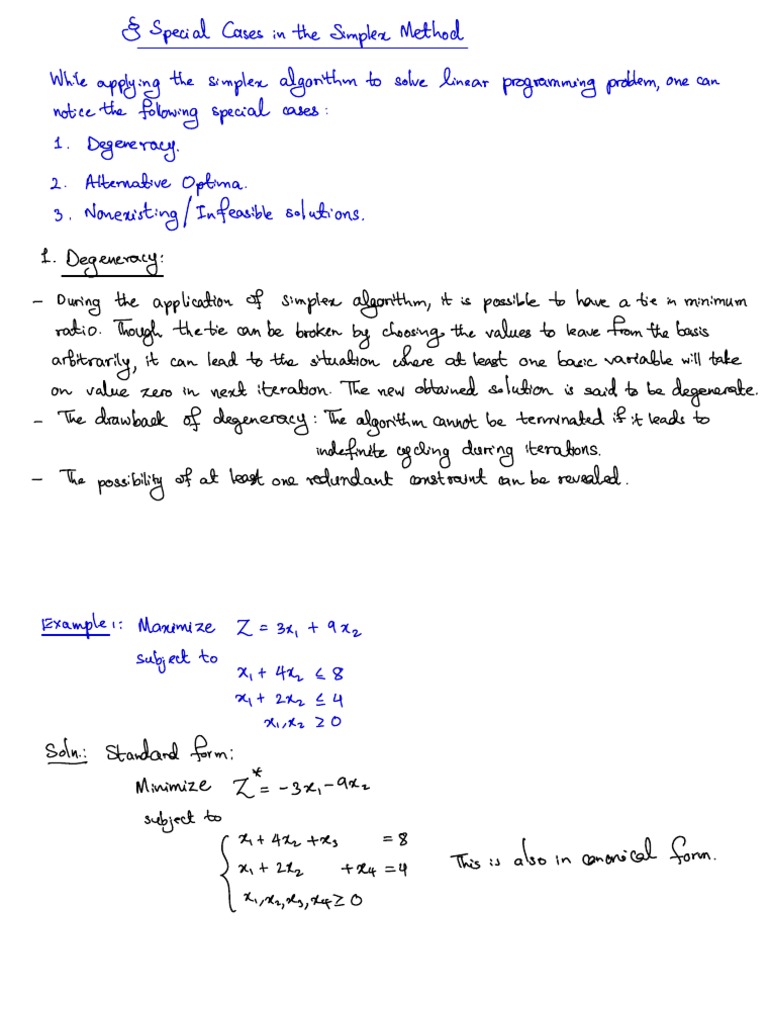 § Special Cases in the Simplex Method
While applying the simplex algorithm to solve linear programming problem, one can
notice the following special cases:
1. Degeneracy.
2. Alternative Optima.
3. Nonexisting/Infeasible solutions.
1. Degeneracy:
- During the application of simplex algorithm, it is possible to have a tie in minimum
ratio. Though the tie can be broken by choosing the values to leave from the basis
arbitrarily, it can lead to the situation where at least one basic variable will take
on value zero in next iteration. The new obtained solution is said to be degenerate.
- The drawback of degeneracy: The algorithm cannot be terminated if it leads to
indefinite cycling during iterations.
- The possibility of at least one redundant constraint can be revealed.
Example 1: Maximize Z = 3x₁ + 9x₂
subject to
x₁ + 4x₂ ≤ 8
x₁ + 2x₂ ≤ 4
x₁, x₂ ≥ 0
Soln.: Standard form:
Minimize Z* = -3x₁ - 9x₂
subject to
x₁ + 4x₂ + x₃ = 8
x₁ + 2x₂ + x₄ = 4 This is also in canonical form.
x₁, x₂, x₃, x₄ ≥ 0